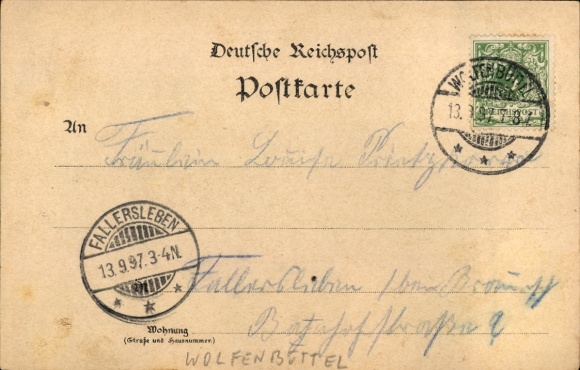 Deutsche Reichspost
Postkarte
WOLFENBÜTTEL
13.9.97. 7-8V.
An
Fräulein Louise
FALLERSLEBEN
13.9.97. 3-4N.
Fallersleben
Bahnhofstraße
Wohnung
(Straße und Hausnummer)
WOLFENBÜTTEL